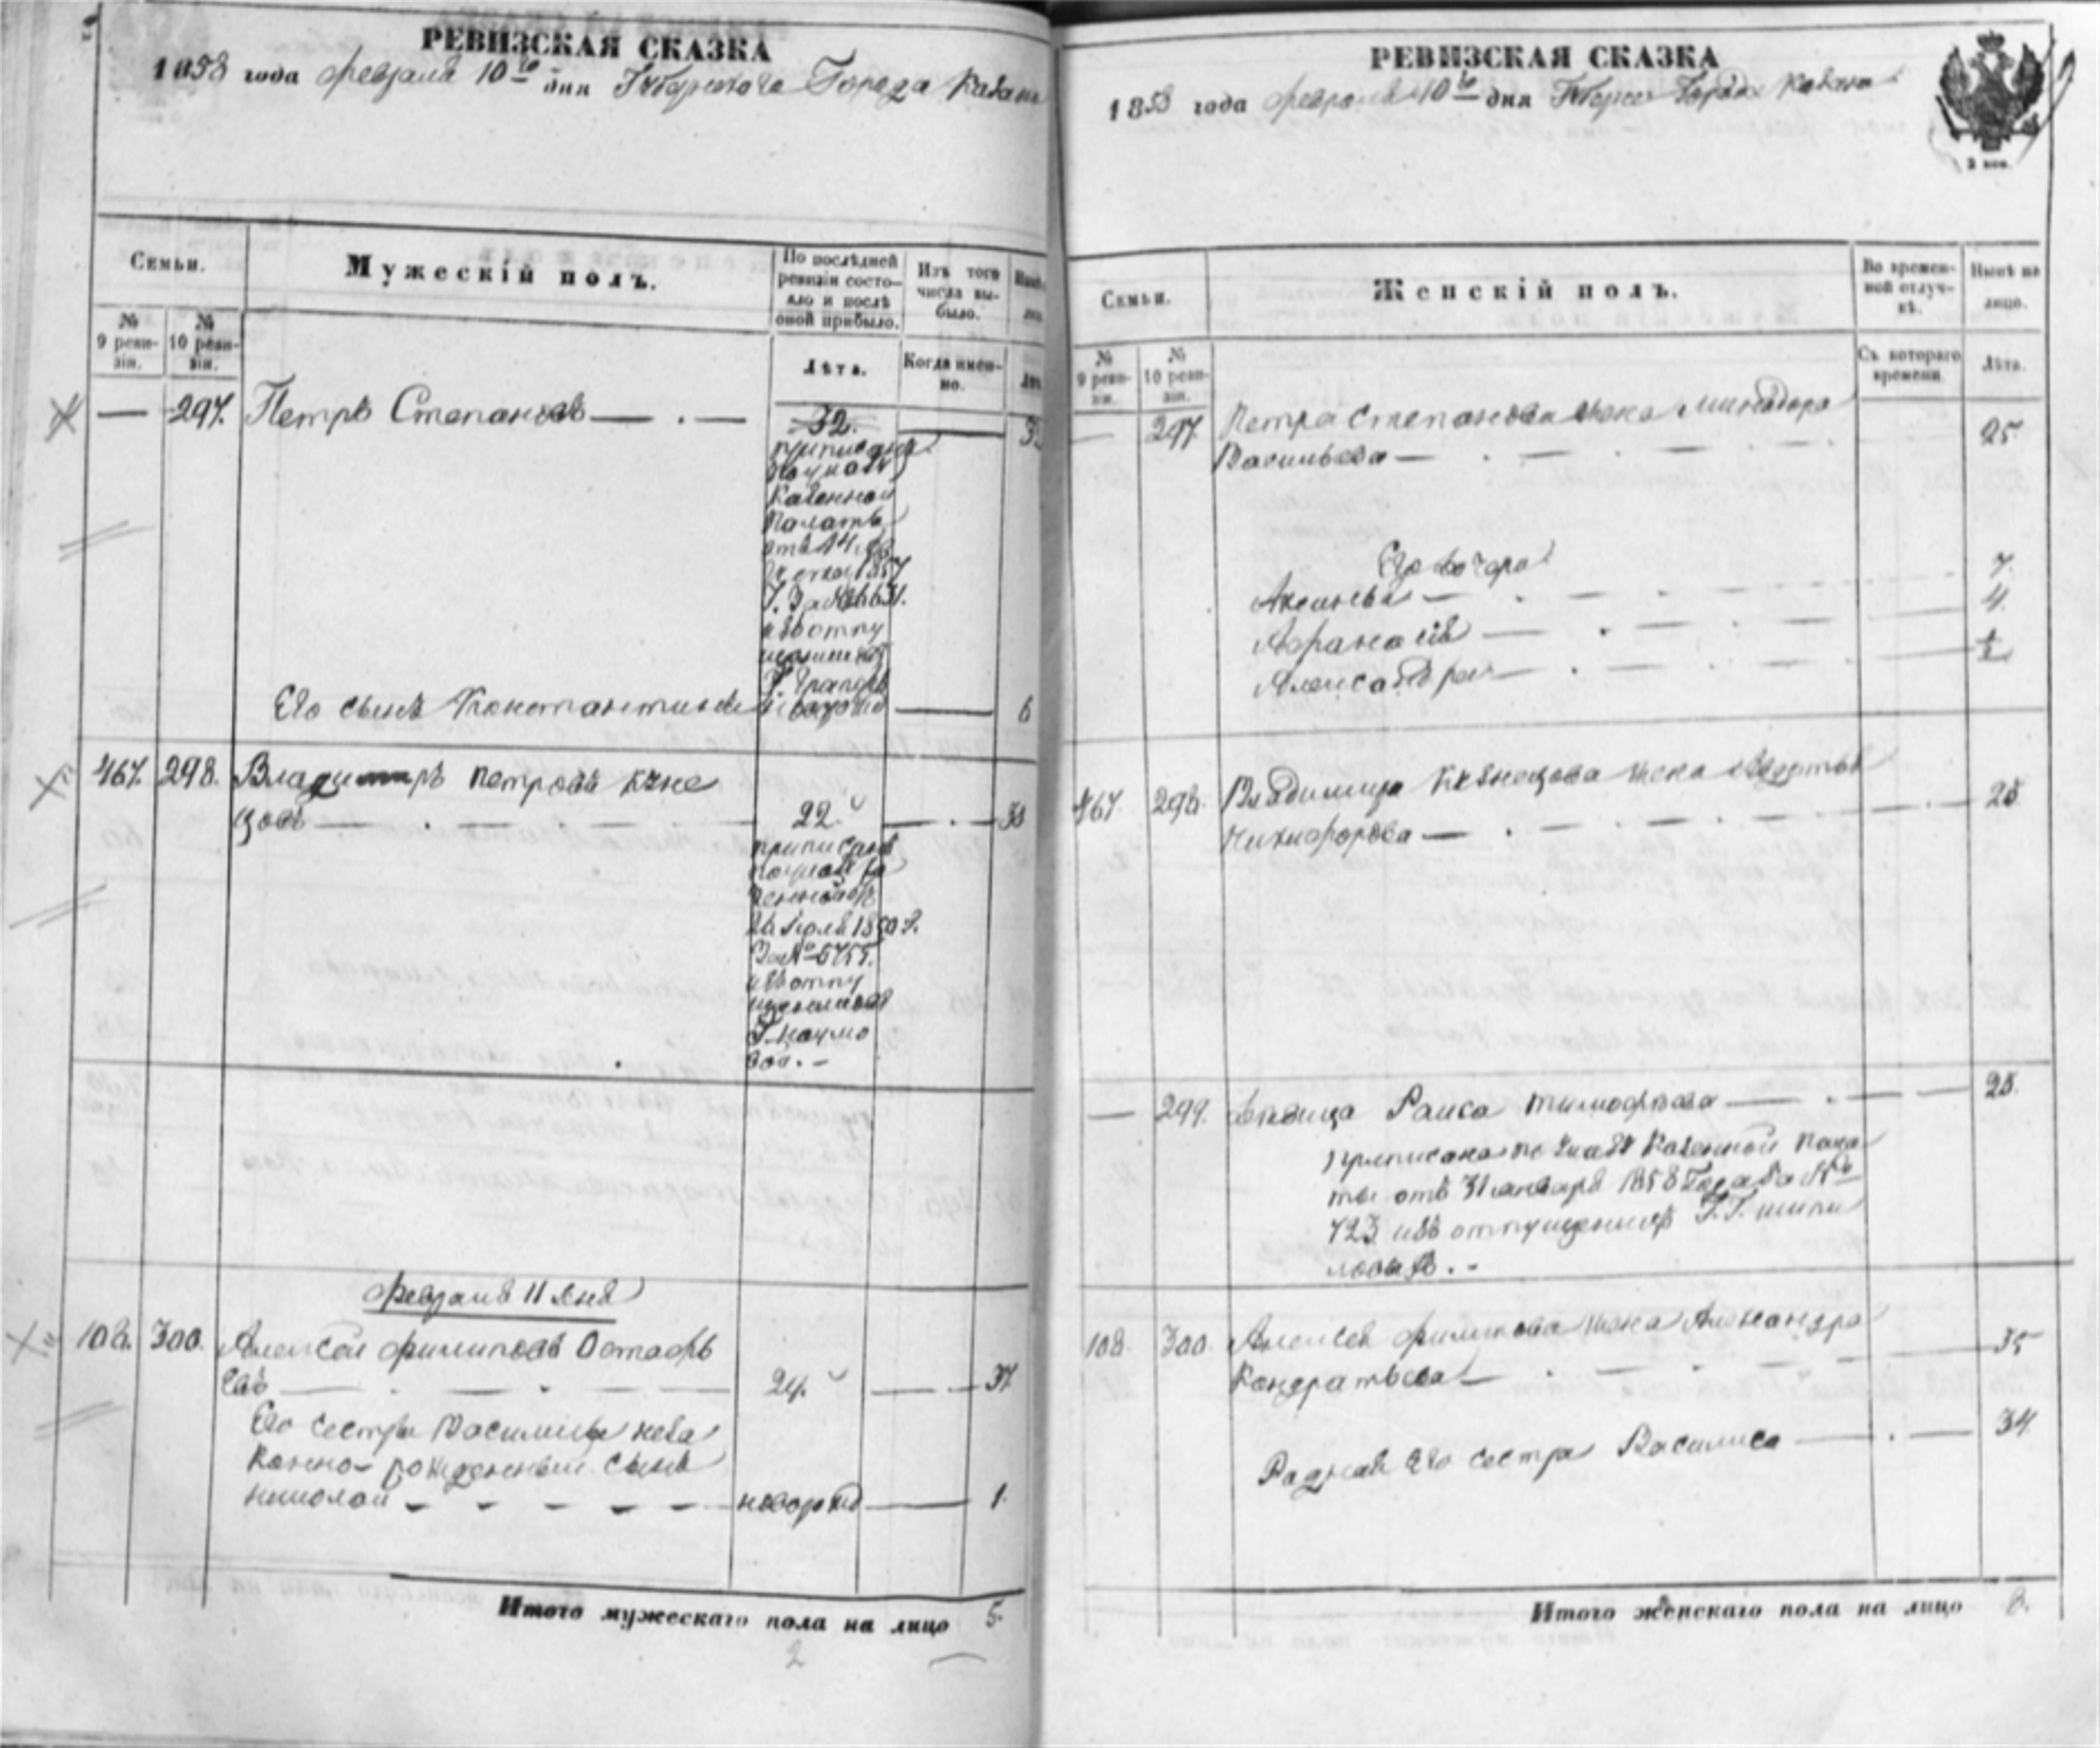 РЕВИЗСКАЯ СКАЗКА
1858 года февраля 10го дня Губернскаго Города Казани
Семьи.
Мужескій полъ.
По послѣдней ревизіи состояло и послѣ оной прибыло.
Изъ того числа выбыло.
№ 9 ревизіи.
№ 10 ревизіи.
Лѣта.
Когда именно.
— 297. Петръ Степановъ — . — 32.
приписанъ
по указу
Казенной
Палаты
отъ 14
1857
Г. за № 6631.
изъ отпу
щенныхъ
Г.
Его сынъ Константинъ новорожд — 6
467. 298. Владимиръ Петровъ Кузне
цовъ — 22. — 30
приписанъ
по указу Ка
зенной
26 1850 г.
За № 5755.
изъ отпу
щенныхъ
Г. Наумо
ва. –
Февраля 11 дня
108. 300. Алексей Филиповъ Остафь
евъ — 24. — 37
Его сестры Василисы неза
конно-рожденный сынъ
Николай – – – – – новорожд — 1.
Итого мужескаго пола на лицо 5.
2
РЕВИЗСКАЯ СКАЗКА
1858 года февраля 10го дня Города Казани
3 коп.
Семьи.
Женскій полъ.
Во временной отлучкѣ.
Нынѣ на лицо.
№ 9 ревизіи.
№ 10 ревизіи.
Съ котораго времени.
Лѣта.
— 297. Петра Степанова жена Минодора
Васильева — 25
Его дочери
Аксинья — 7.
Афанасія — 4.
Александра — 1/2
467. 298. Владимира Кузнецова жена Авдотья
Никифорова — 28
— 299. Девица Раиса Тимофеева — . — 25.
Приписана по указу Казенной Пала
ты отъ 31 января 1858 Года за №
723 изъ отпущенныхъ Г.Г. Шипи
ловыхъ. –
108. 300. Алексея Филипова жена Александра
Кондратьева — 35
Родная Его сестра Василиса — . — 34
Итого женскаго пола на лицо 8.